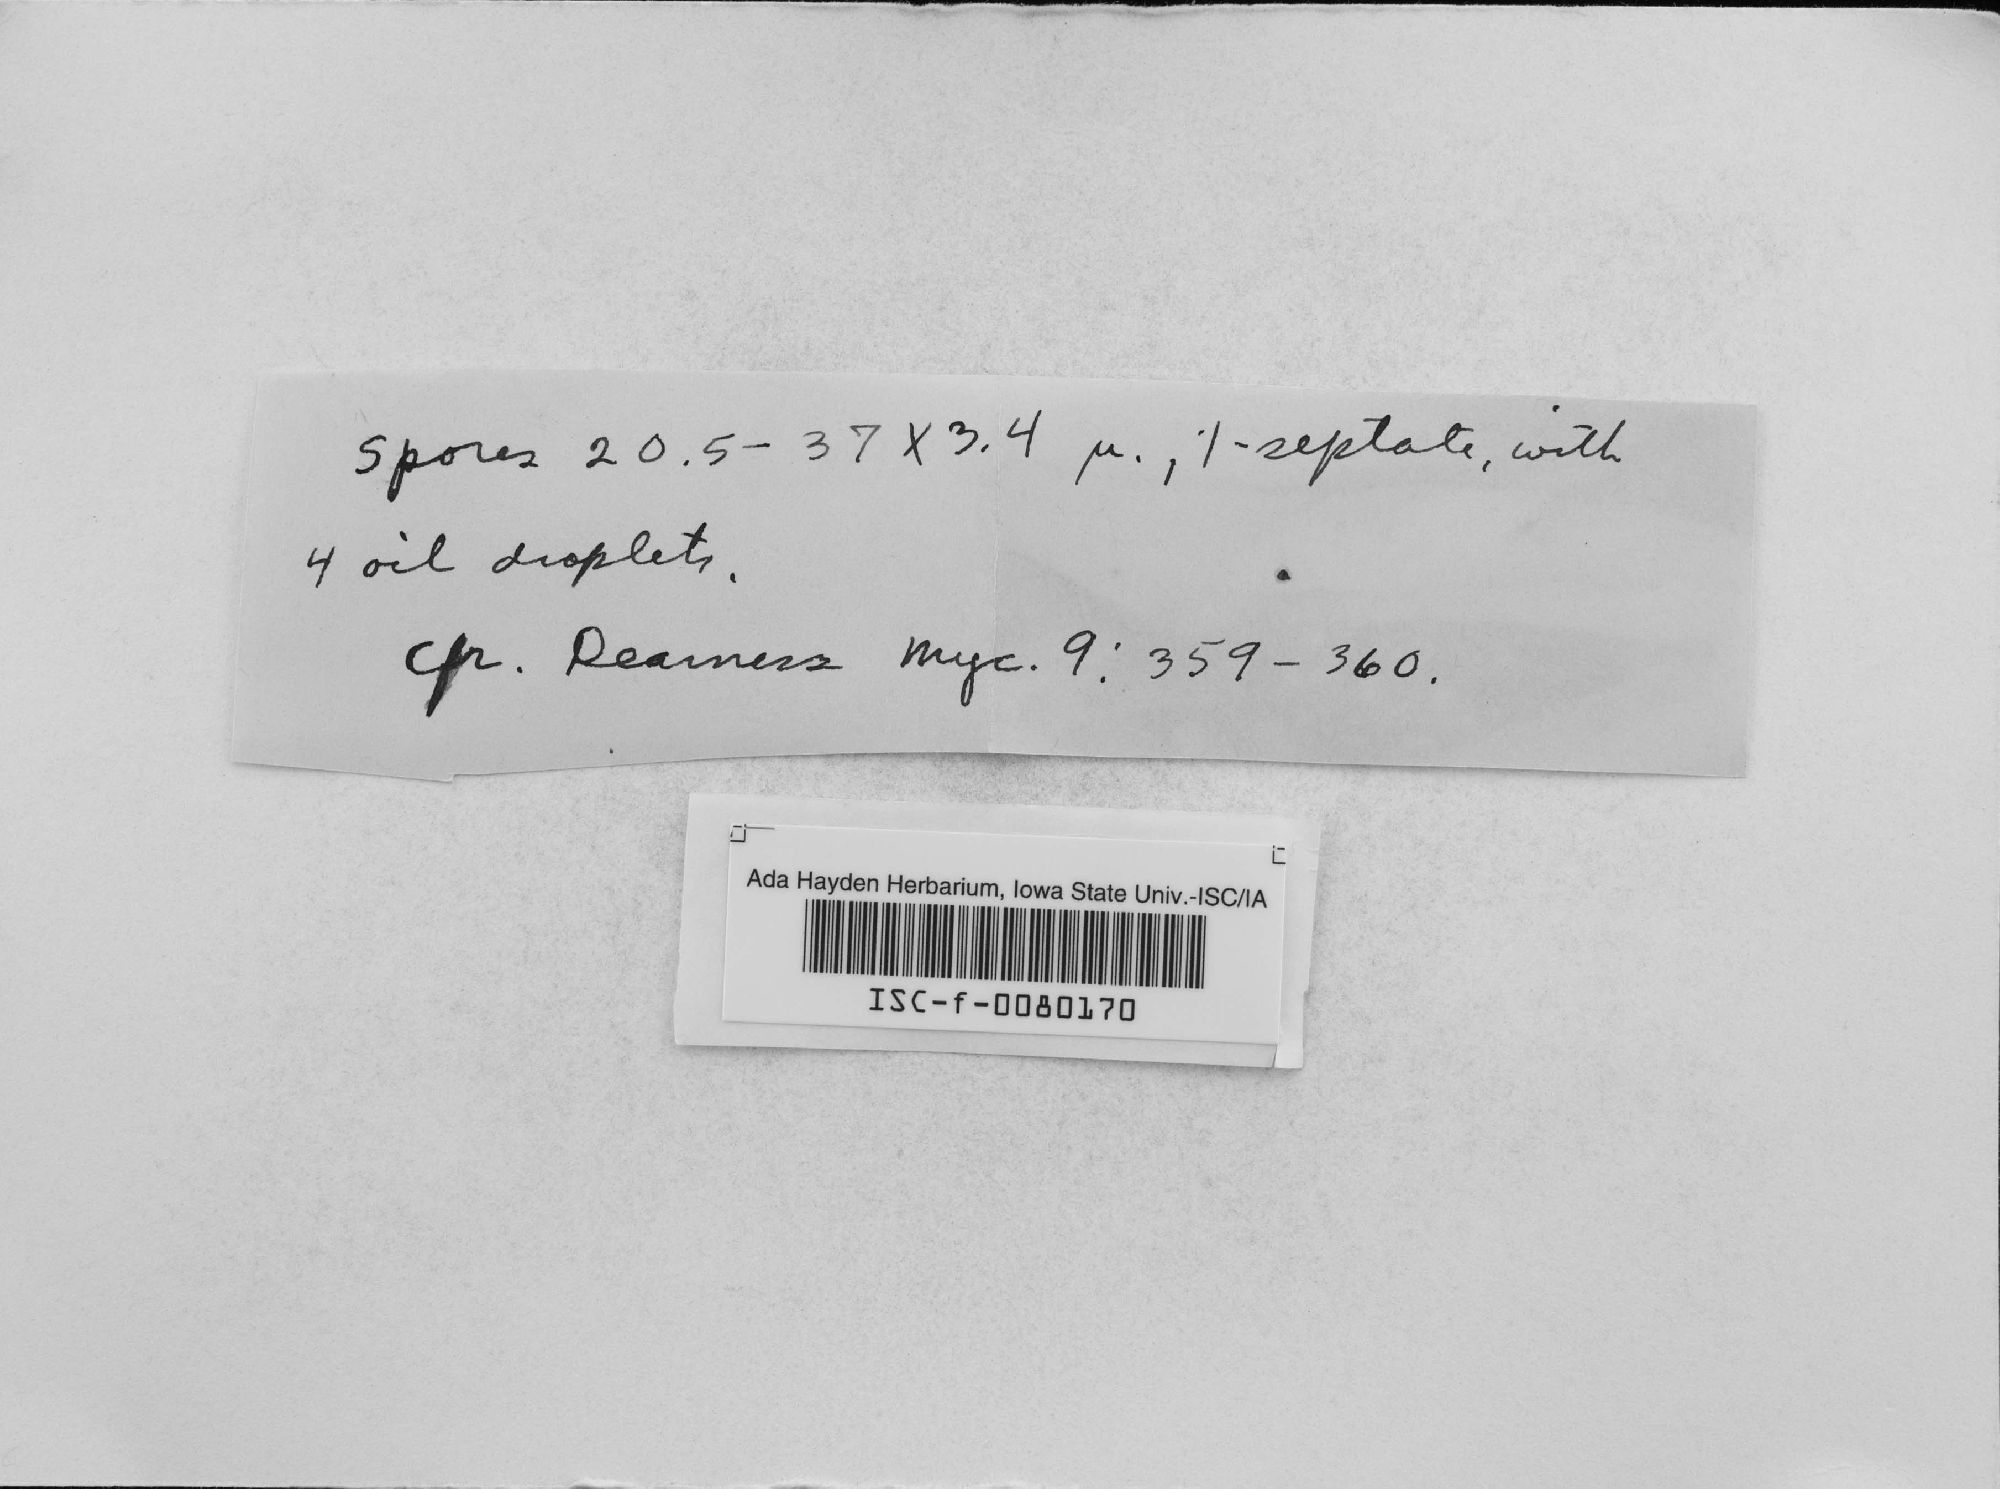 Spores 20.5-37 X 3.4 µ., 1-septate, with
4 oil droplets.
Cfr. Dearness Myc. 9: 359-360.
Ada Hayden Herbarium, Iowa State Univ.-ISC/IA
ISC-f-0080170